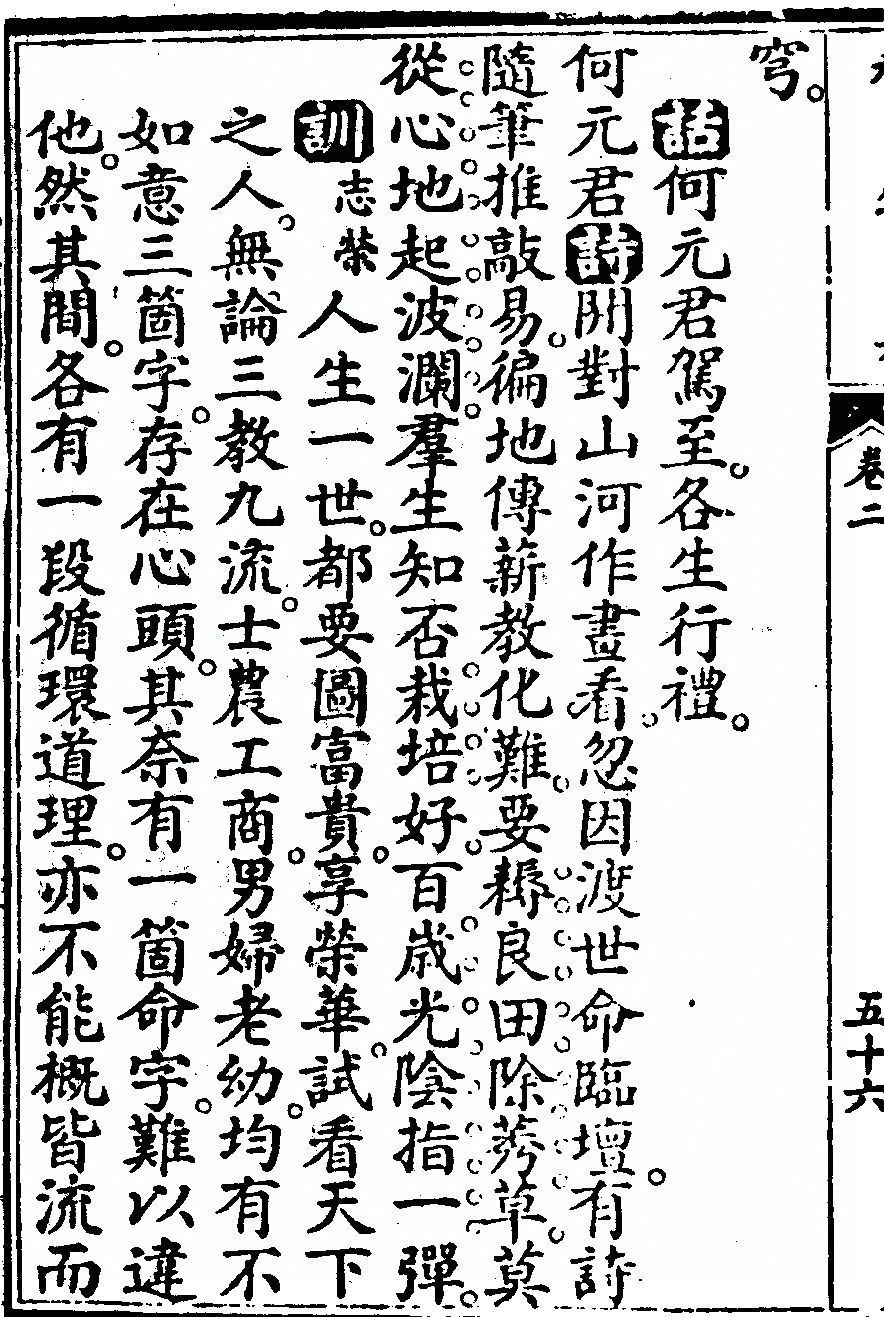 卷二
五十六
穹。
話何元君駕至。各生行禮。
何元君詩閒對山河作畫看。忽因渡世命臨壇。有詩
隨筆推敲易。徧地傳薪教化難。要耨良田除莠草。莫
從心地起波瀾。羣生知否栽培好。百歲光陰指一彈。
訓志榮人生一世。都要圖富貴。享榮華。試看天下
之人。無論三教九流。士農工商。男婦老幼。均有不
如意三箇字。存在心頭。其奈有一箇命字。難以違
他。然其間。各有一段循環道理。亦不能概皆流而